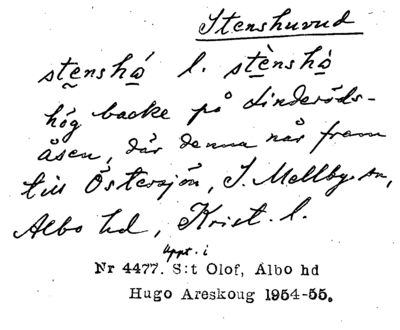 Stenshuvud
stenshó l. stènshò
hög backe på Linderöds-
åsen, där denna når fram
till Östersjön, S. Mellby sn,
Albo hd, Krist. l.
Uppt. i
Nr 4477. S:t Olof, Albo hd
Hugo Areskoug 1954-55.